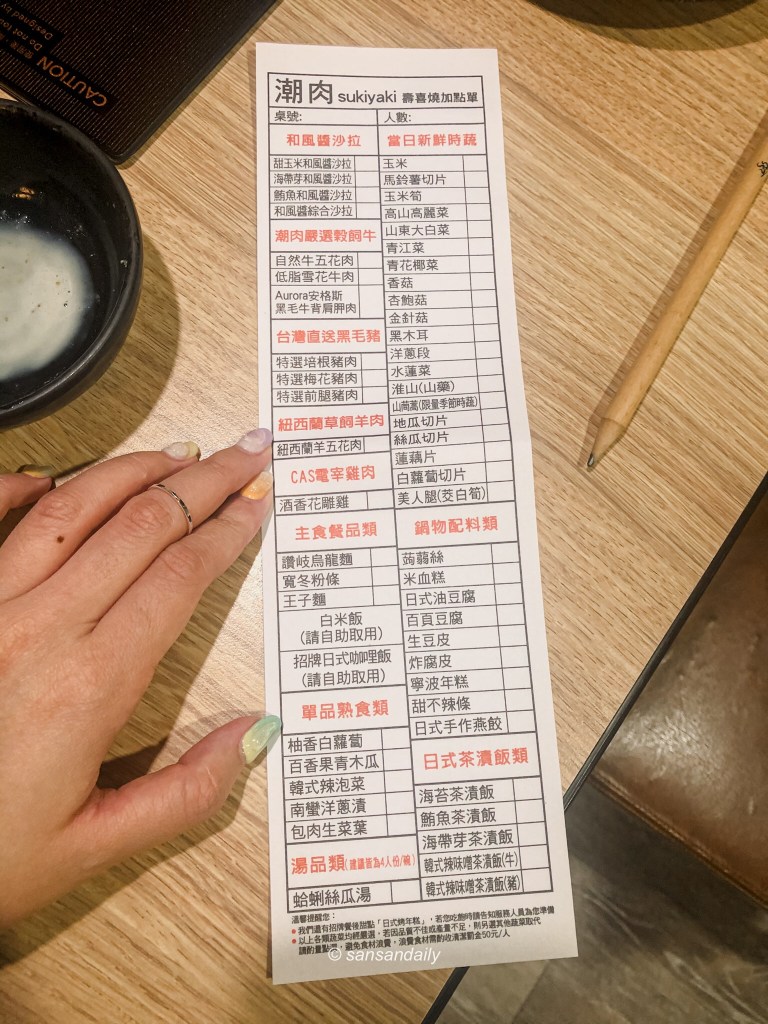 潮肉 sukiyaki 壽喜燒加點單
桌號:
人數:
和風醬沙拉
甜玉米和風醬沙拉
海帶芽和風醬沙拉
鮪魚和風醬沙拉
和風醬綜合沙拉
潮肉嚴選穀飼牛
自然牛五花肉
低脂雪花牛肉
Aurora安格斯
黑毛牛背肩胛肉
台灣直送黑毛豬
特選培根豬肉
特選梅花豬肉
特選前腿豬肉
紐西蘭草飼羊肉
紐西蘭羊五花肉
CAS電宰雞肉
酒香花雕雞
主食餐品類
讚岐烏龍麵
寬冬粉條
王子麵
白米飯
(請自助取用)
招牌日式咖哩飯
(請自助取用)
單品熟食類
柚香白蘿蔔
百香果青木瓜
韓式辣泡菜
南蠻洋蔥漬
包肉生菜葉
湯品類(建議皆為4人份/碗)
蛤蜊絲瓜湯
當日新鮮時蔬
玉米
馬鈴薯切片
玉米筍
高山高麗菜
山東大白菜
青江菜
青花椰菜
香菇
杏鮑菇
金針菇
黑木耳
洋蔥段
水蓮菜
淮山(山藥)
山茼蒿(限量季節時蔬)
地瓜切片
絲瓜切片
蓮藕片
白蘿蔔切片
美人腿(茭白筍)
鍋物配料類
蒟蒻絲
米血糕
日式油豆腐
百頁豆腐
生豆皮
炸腐皮
寧波年糕
甜不辣條
日式手作燕餃
日式茶漬飯類
海苔茶漬飯
鮪魚茶漬飯
海帶芽茶漬飯
韓式辣味噌茶漬飯(牛)
韓式辣味噌茶漬飯(豬)
溫馨提醒您:
● 我們還有招牌餐後甜點「日式烤年糕」,若您吃飽時請告知服務人員為您準備
● 以上各類蔬菜均經嚴選,若因品質不佳或產量不足,則另選其他蔬菜取代
請酌量點選,避免食材浪費,浪費食材需酌收清潔罰金50元/人
© sansandaily
CAUTION
Do not touc
Designed by